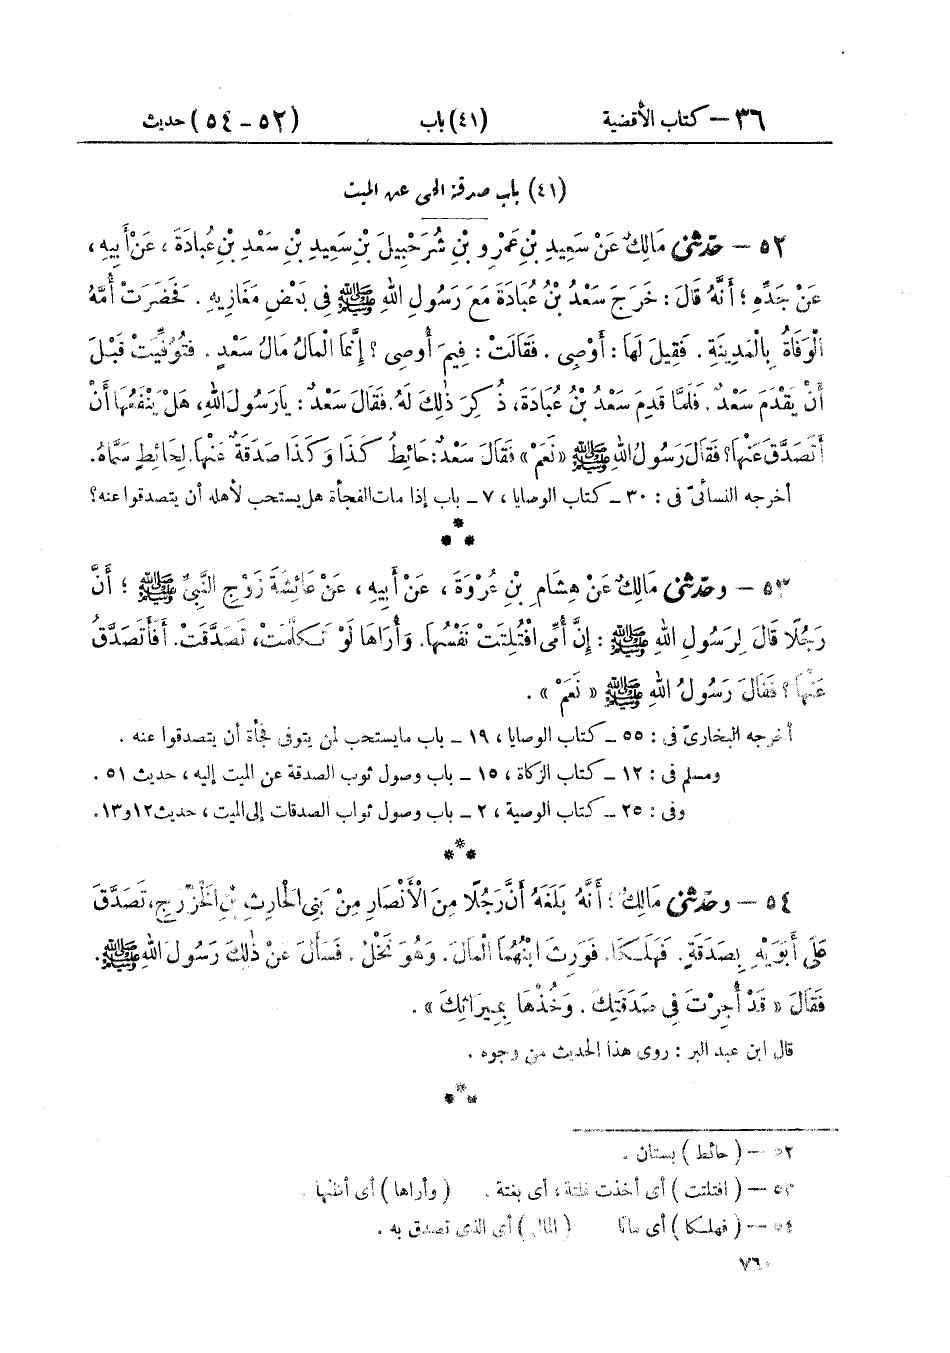 ٣٦ – كتاب الأقضية (٤١) باب (٥٢ – ٥٤) حديث
(٤١) باب صدقة الحى عن الميت
٥٢ – حَدَّثَنِى مَالِكٌ عَنْ سَعِيدِ بْنِ عَمْرِو بْنِ شُرَحْبِيلَ بْنِ سَعِيدِ بْنِ سَعْدِ بْنِ عُبَادَةَ ، عَنْ أَبِيهِ ،
عَنْ جَدِّهِ ؛ أَنَّهُ قَالَ : خَرَجَ سَعْدُ بْنُ عُبَادَةَ مَعَ رَسُولِ اللهِ ﷺ فِى بَعْضِ مَغَازِيهِ . فَحَضَرَتْ أُمَّهُ
الْوَفَاةُ بِالْمَدِينَةِ . فَقِيلَ لَهَا : أَوْصِى . فَقَالَتْ : فِيمَ أُوصِى ؟ إِنَّمَا الْمَالُ مَالُ سَعْدٍ . فَتُوُفِّيَتْ قَبْلَ
أَنْ يَقْدَمَ سَعْدٌ . فَلَمَّا قَدِمَ سَعْدُ بْنُ عُبَادَةَ، ذُكِرَ ذٰلِكَ لَهُ. فَقَالَ سَعْدٌ : يَارَسُولَ اللهِ، هَلْ يَنْفَعُهَا أَنْ
أَتَصَدَّقَ عَنْهَا؟ فَقَالَ رَسُولُ اللهِ ﷺ «نَعَمْ» فَقَالَ سَعْدٌ: حَائِطُ كَذَا وَكَذَا صَدَقَةٌ عَنْهَا. لِحَائِطٍ سَمَّاهُ.
أخرجه النسائىّ فى : ٣٠ ـ كتاب الوصايا ، ٧ ـ باب إذا مات الفجأة هل يستحب لأهله أن يتصدقوا عنه؟
***
٥٣ – وحَدَّثَنِى مَالِكٌ عَنْ هِشَامِ بْنِ عُرْوَةَ ، عَنْ أَبِيهِ ، عَنْ عَائِشَةَ زَوْجِ النَّبِىِّ ﷺ ؛ أَنَّ
رَجُلًا قَالَ لِرَسُولِ اللهِ ﷺ : إِنَّ أُمِّى افْتُلِتَتْ نَفْسُهَا. وَأُرَاهَا لَوْ تَكَلَّمَتْ، تَصَدَّقَتْ. أَفَأَتَصَدَّقُ
عَنْهَا ؟ فَقَالَ رَسُولُ اللهِ ﷺ « نَعَمْ » .
أخرجه البخارىّ فى : ٥٥ ـ كتاب الوصايا ، ١٩ ـ باب ما يستحب لمن يتوفى فجأة أن يتصدقوا عنه .
ومسلم فى : ١٢ ـ كتاب الزكاة ، ١٥ ـ باب وصول ثوب الصدقة عن الميت إليه ، حديث ٥١ .
وفى : ٢٥ ـ كتاب الوصية ، ٢ ـ باب وصول ثواب الصدقات إلى الميت ، حديث ١٢ و١٣.
***
٥٤ – وحَدَّثَنِى مَالِكٌ ؛ أَنَّهُ بَلَغَهُ أَنَّ رَجُلًا مِنَ الْأَنْصَارِ مِنْ بَنِى الْحَارِثِ بْنِ الْخَزْرَجِ، تَصَدَّقَ
عَلَى أَبَوَيْهِ بِصَدَقَةٍ. فَهَلَكَا. فَوَرِثَ ابْنُهُمَا الْمَالَ. وَهُوَ نَخْلٌ . فَسَأَلَ عَنْ ذٰلِكَ رَسُولَ اللهِ ﷺ.
فَقَالَ « قَدْ أُجِرْتَ فِى صَدَقَتِكَ . وَخُذْهَا بِمِيرَاثِكَ » .
قال ابن عبد البر : روى هذا الحديث من وجوه .
***
٥٢ – ( حائط ) بستان .
٥٣ – ( افتلتت ) أى أخذت فلتة ، أى بغتة . ( وأراها ) أى أظنها .
٥٤ – ( فهلكا ) أى ماتا ( المال ) أى الذى تصدق به .
٧٦٠